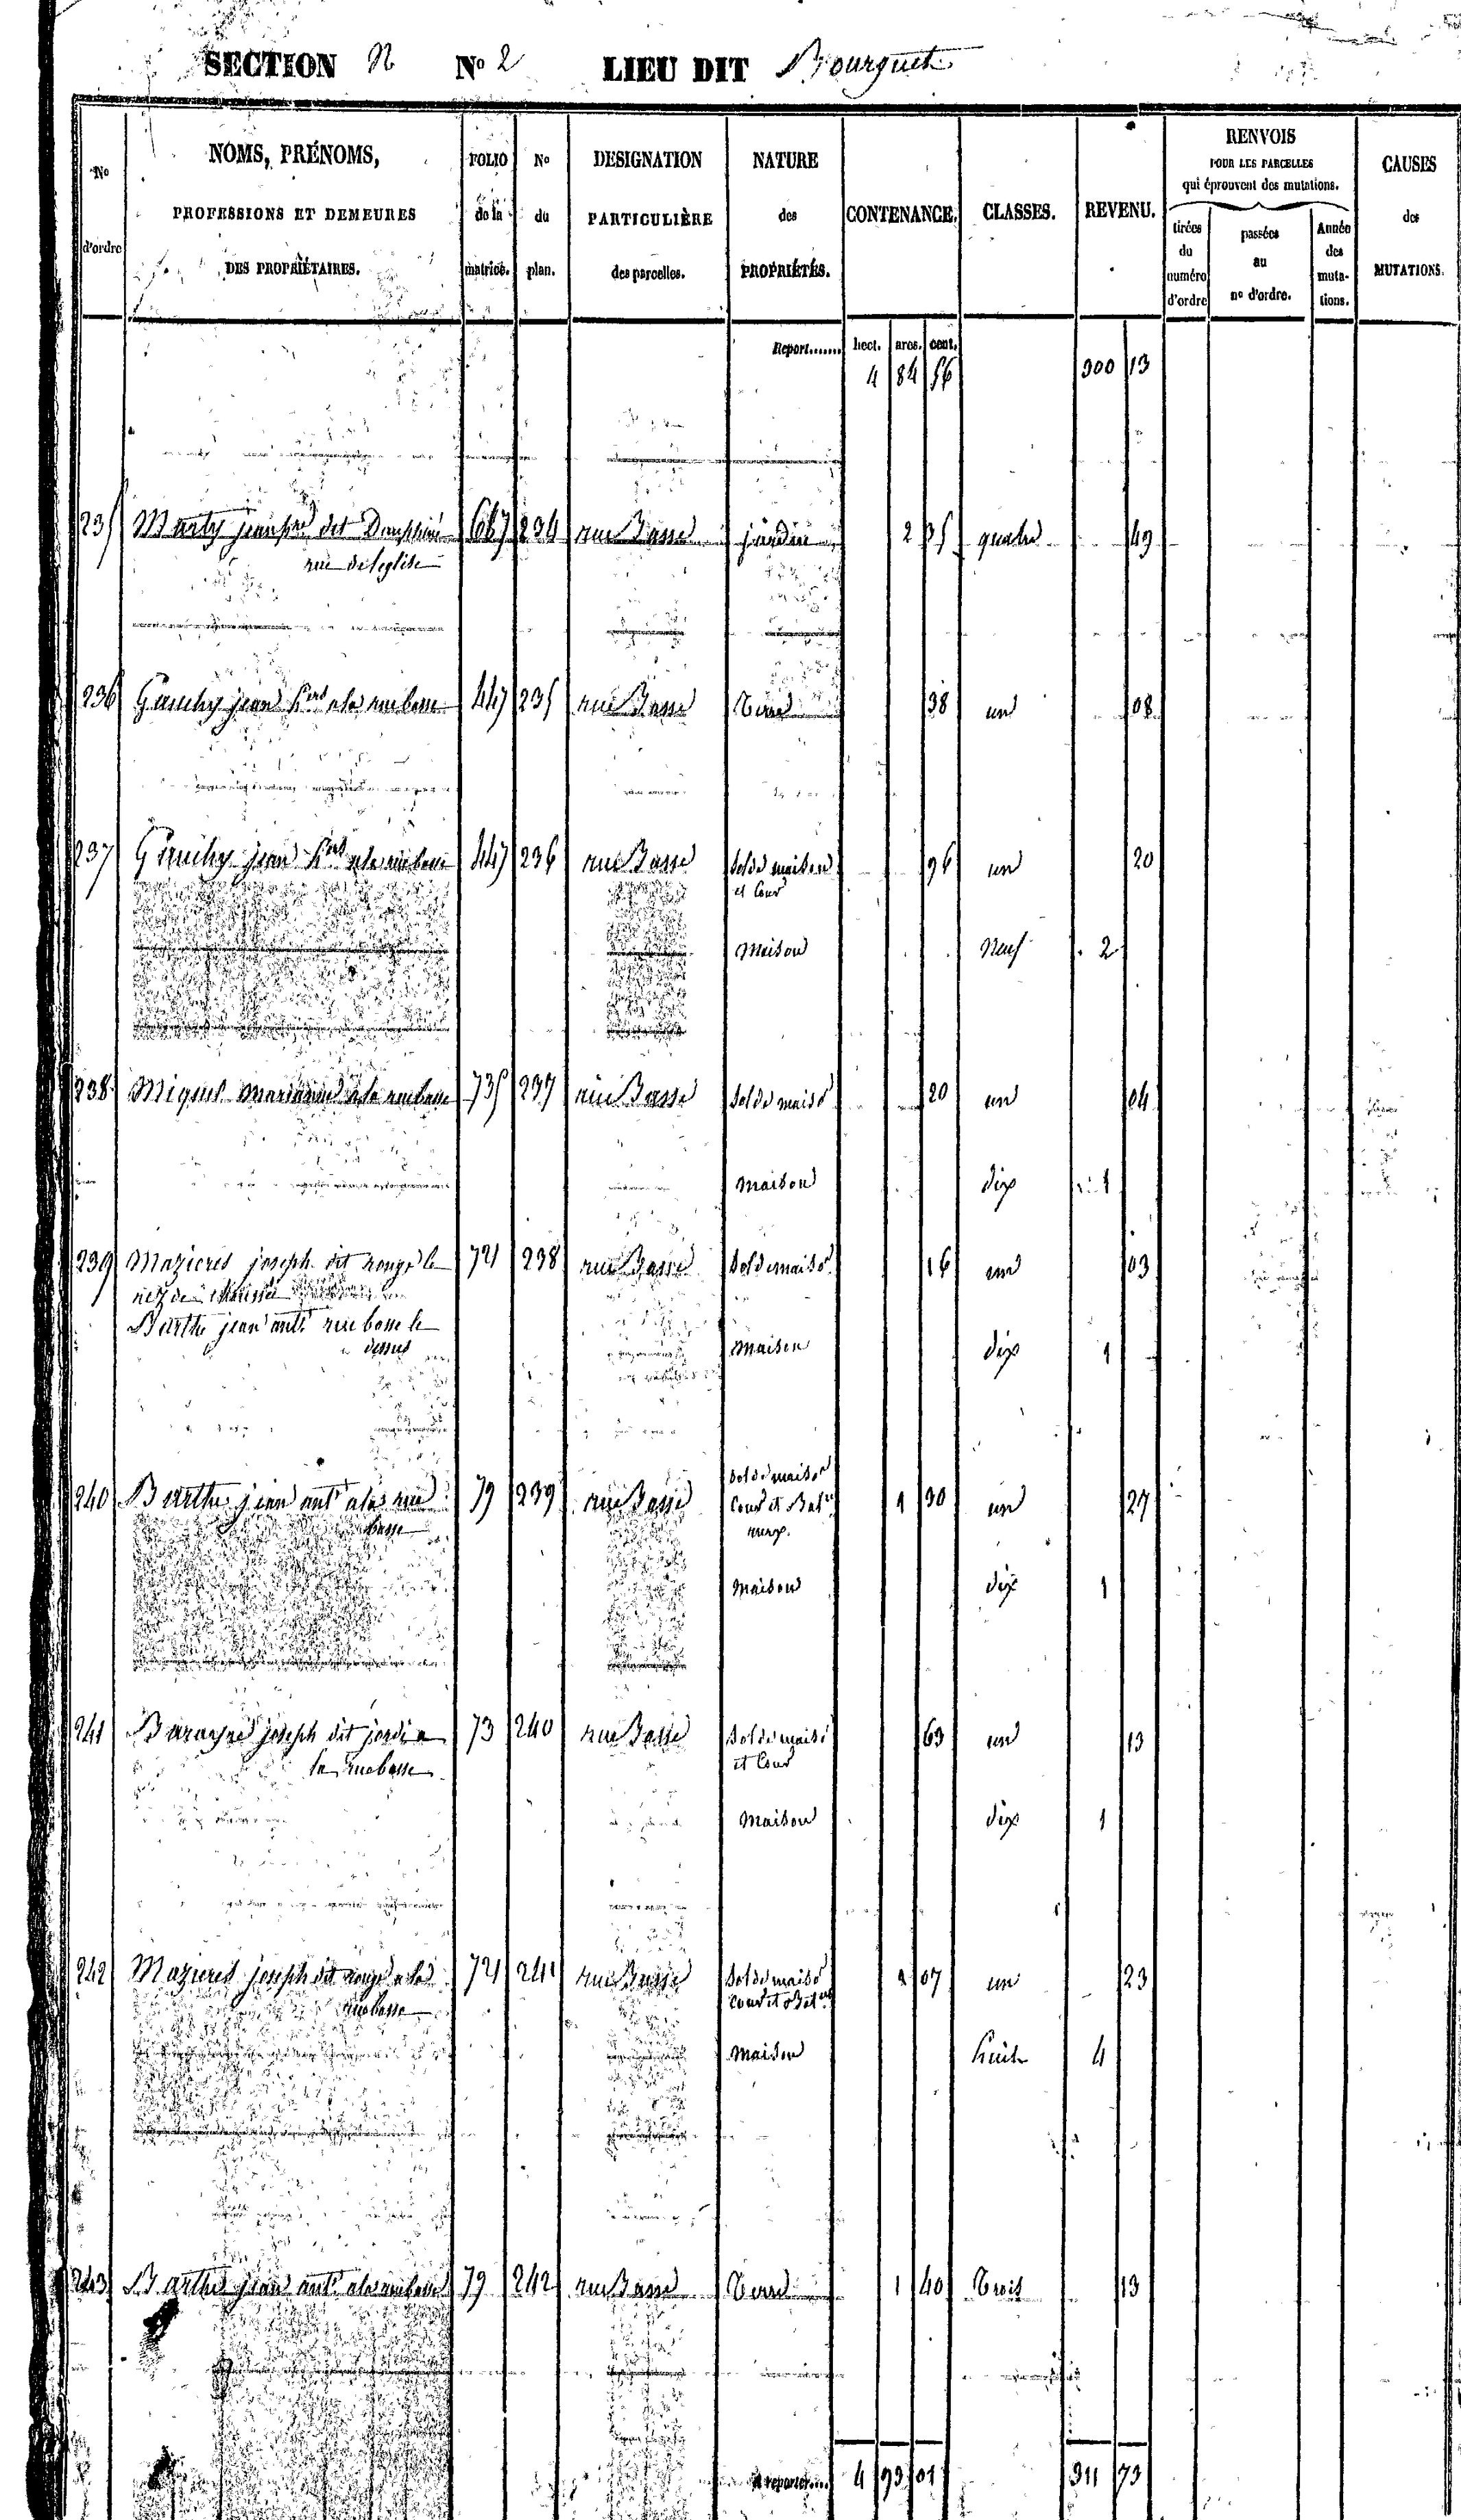 SECTION N No 2 LIEU DIT Bourguet
No d'ordre
NOMS, PRÉNOMS, PROFESSIONS ET DEMEURES DES PROPRIÉTAIRES.
FOLIO de la matrice.
No du plan.
DESIGNATION PARTICULIÈRE des parcelles.
NATURE des PROPRIÉTÉS.
CONTENANCE.
CLASSES.
REVENU.
RENVOIS POUR LES PARCELLES qui éprouvent des mutations.
tirées du numéro d'ordre
passées au no d'ordre.
Année des mutations.
CAUSES des MUTATIONS.
Report....... hect. ares. cent.
4 84 56 300 13
235 Marty dit 667 234 rue Basse jardin 2 35 quatre 49
rue de leglise
236 jean 447 235 rue Basse 38 un 08
237 jean 447 236 rue Basse Sol de maison 96 un 20
et Cour
Maison Neuf 2
238 Miquel 735 237 rue Basse Sol de maison 20 un 04
Maison dix 1
239 Mazieres joseph dit rouge le 721 238 rue Basse Sol de maison 16 un 03
rez de chaussée
Barthe jean ant. rue basse le
dessus
Maison dix 1
240 Barthe jean ant. a la rue 79 239 rue Basse Sol de maison 1 30 un 27
basse Cour et Bat.
Maison dix 1
241 joseph dit 73 240 rue Basse Sol de mais. 63 un 13
la rue basse et Cour
Maison dix 1
242 Mazieres joseph dit rouge a la 721 241 rue Basse Sol de mais. 1 07 un 23
rue basse Cour et Bat.
Maison huit 4
243 Barthe jean ant. a la rue basse 79 242 rue Basse 1 40 Trois 13
A reporter.... 4 93 01 311 73